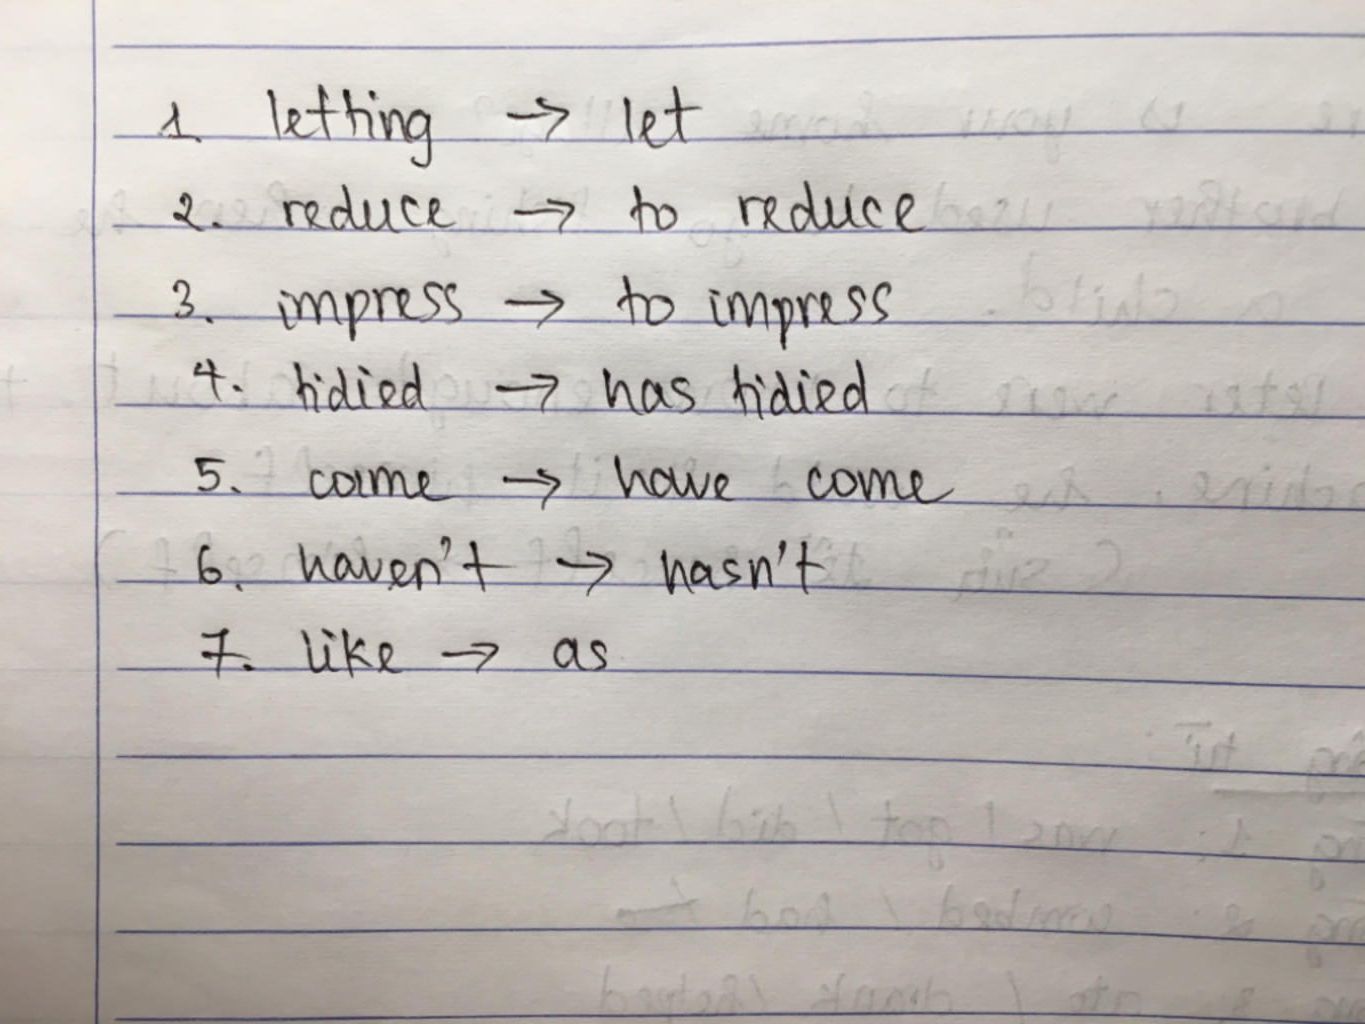 1. letting → let
2. reduce → to reduce
3. impress → to impress
4. tidied → has tidied
5. came → have come
6. haven't → hasn't
7. like → as